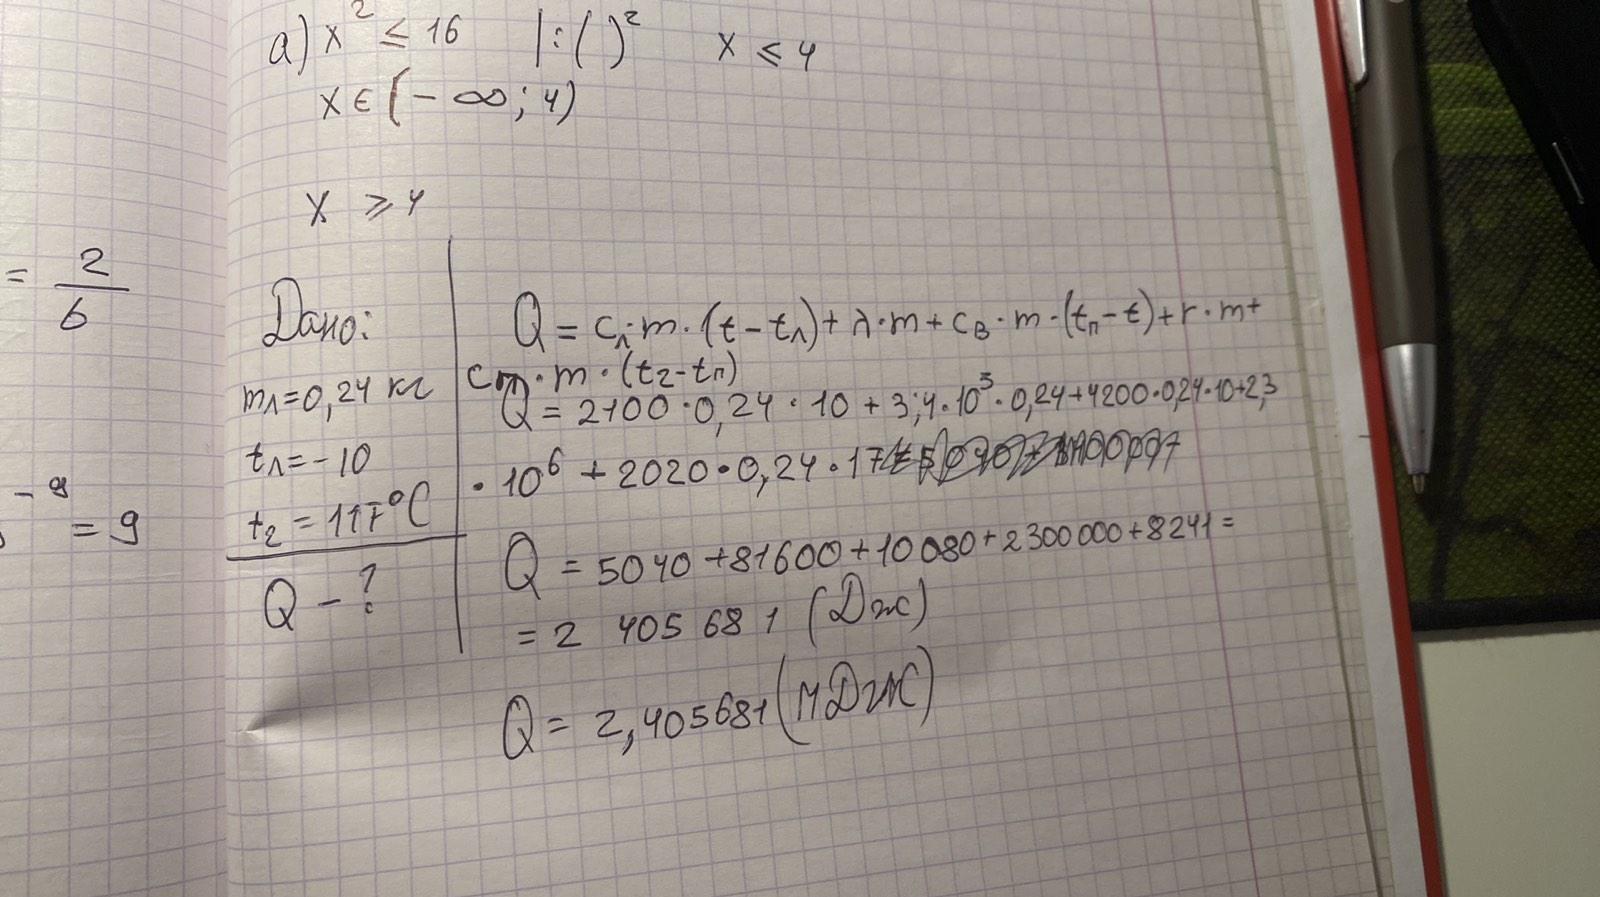 а) x² ≤ 16 |:( )² x ≤ 4
x ∈ (-∞; 4)
x ≥ 4
= 2/6
- 9
= 9
Дано:
mл = 0,24 кг
tл = -10
t₂ = 117°C
Q - ?
Q = cл · m · (t - tл) + λ · m + cв · m · (tп - t) + r · m +
cп · m · (t₂ - tп)
Q = 2100 · 0,24 · 10 + 3,4 · 10⁵ · 0,24 + 4200 · 0,24 · 10 + 2,3
· 10⁶ + 2020 · 0,24 · 17
Q = 5040 + 81600 + 10080 + 2300000 + 8241 =
= 2 405 681 (Дж)
Q = 2,405681 (МДж)